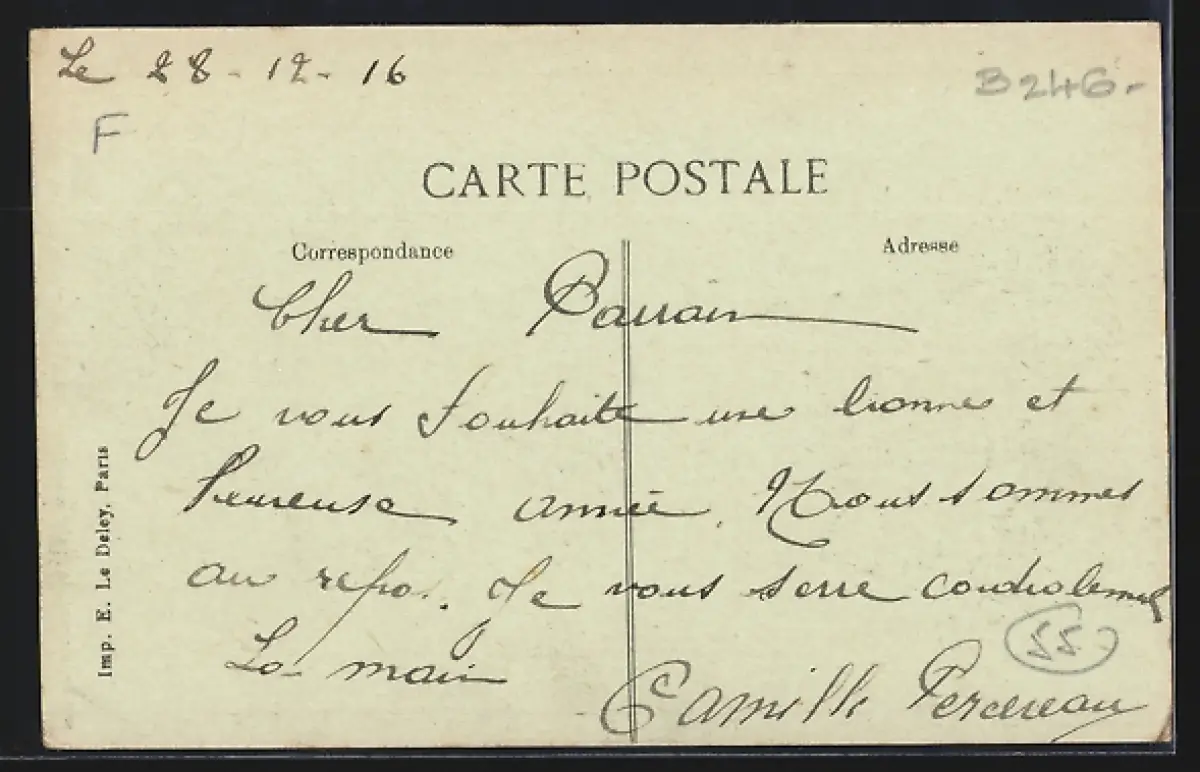 Le 28-12-16
B246-
F
CARTE POSTALE
Correspondance
Adresse
Cher Parrain
Je vous souhaite une bonne et
heureuse année. Nous sommes
au repos. Je vous serre cordialement
La main
Camille
55
Imp. E. Le Deley, Paris